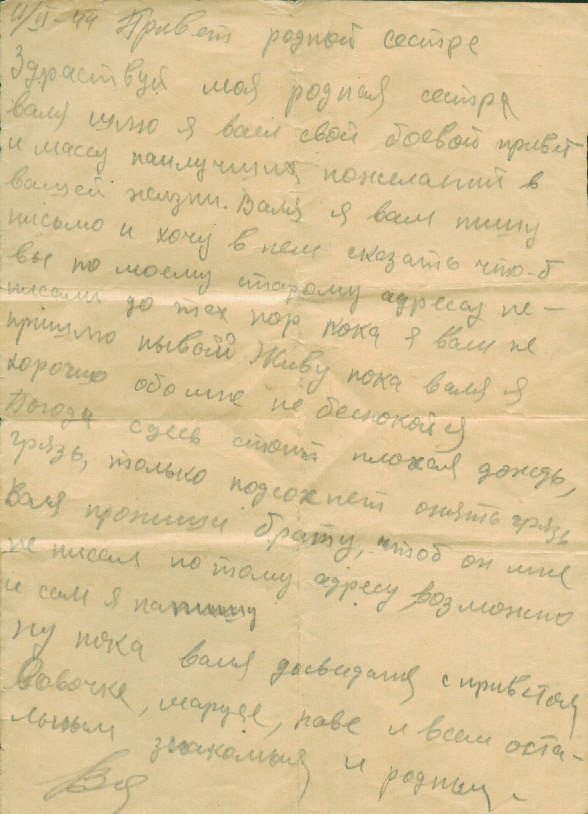 4/II-44 Привет родной сестре
Здраствуй моя родная сестра
валя шлю я вам свой боевой привет
и массу наилучших пожеланий в
вашей жизни. Валя я вам пишу
письмо и хочу в нем сказать что-б
вы по моему старому адресу не-
писали до тех пор пока я вам не
пришлю новый Живу пока валя я
хорошо обо мне не беспокойся
Погода сдесь стоит плохая дождь,
грязь, только подсохнет опять грязь
Валя пропиши брату, чтоб он мне
не писал по тому адресу возможно
и сам я напишу
ну пока валя досвиданя с приветом
Вовочке, марусе, паве и всем оста-
льным знакомым и родным